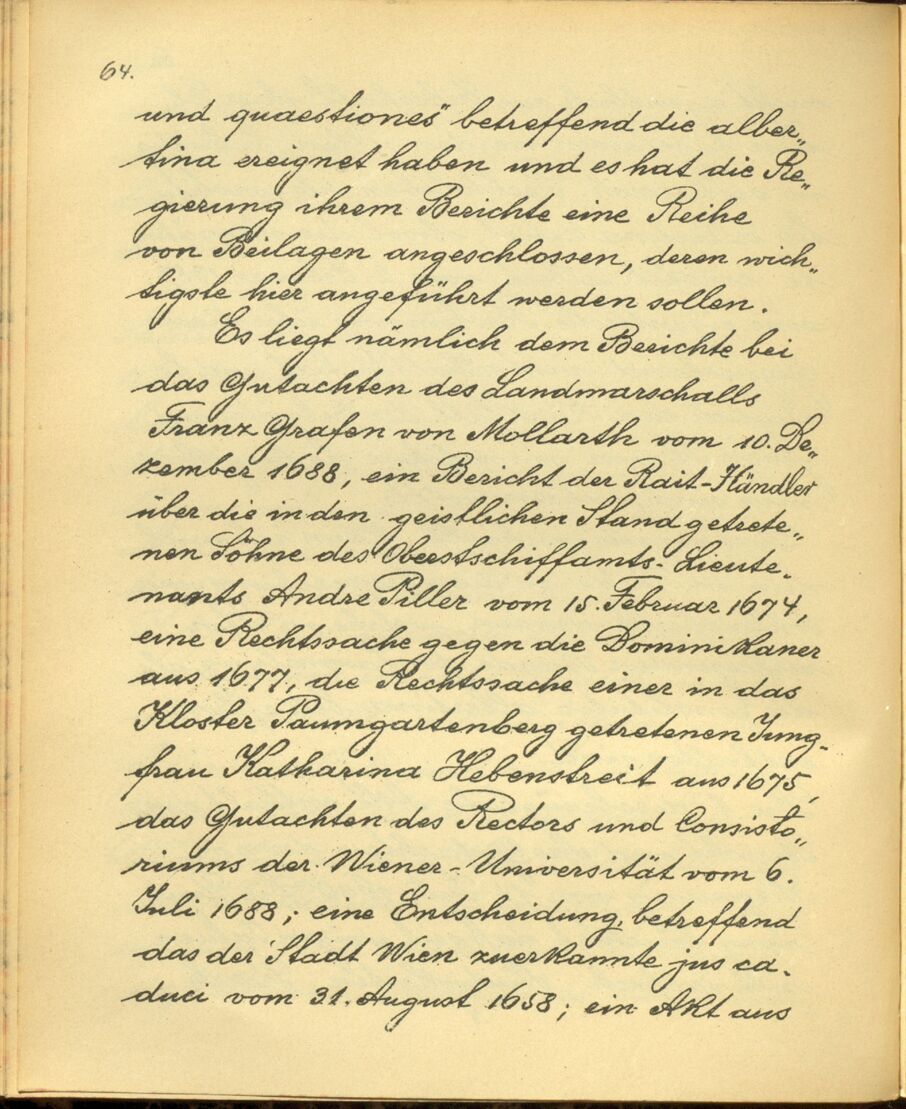 64.
und quaestiones" betreffend die alber„
tina ereignet haben und es hat die Re„
gierung ihrem Berichte eine Reihe
von Beilagen angeschlossen, deren wich„
tigste hier angeführt werden sollen.
Es liegt nämlich dem Berichte bei
das Gutachten des Landmarschalls
Franz Grafen von Mollarth vom 10. De„
zember 1688, ein Bericht der Rait-Händler
über die in den geistlichen Stand getrete„
nen Söhne des Oberstschiffamts-Lieute-
nants Andre Piller vom 15. Februar 1674,
eine Rechtssache gegen die Dominikaner
aus 1677, die Rechtssache einer in das
Kloster Paumgartenberg getretenen Jung-
frau Katharina Hebenstreit aus 1675,
das Gutachten des Rectors und Consisto„
riums der Wiener-Universität vom 6.
Juli 1688; eine Entscheidung, betreffend
das der Stadt Wien zuerkannte jus ca-
duci vom 31. August 1658; ein Akt aus